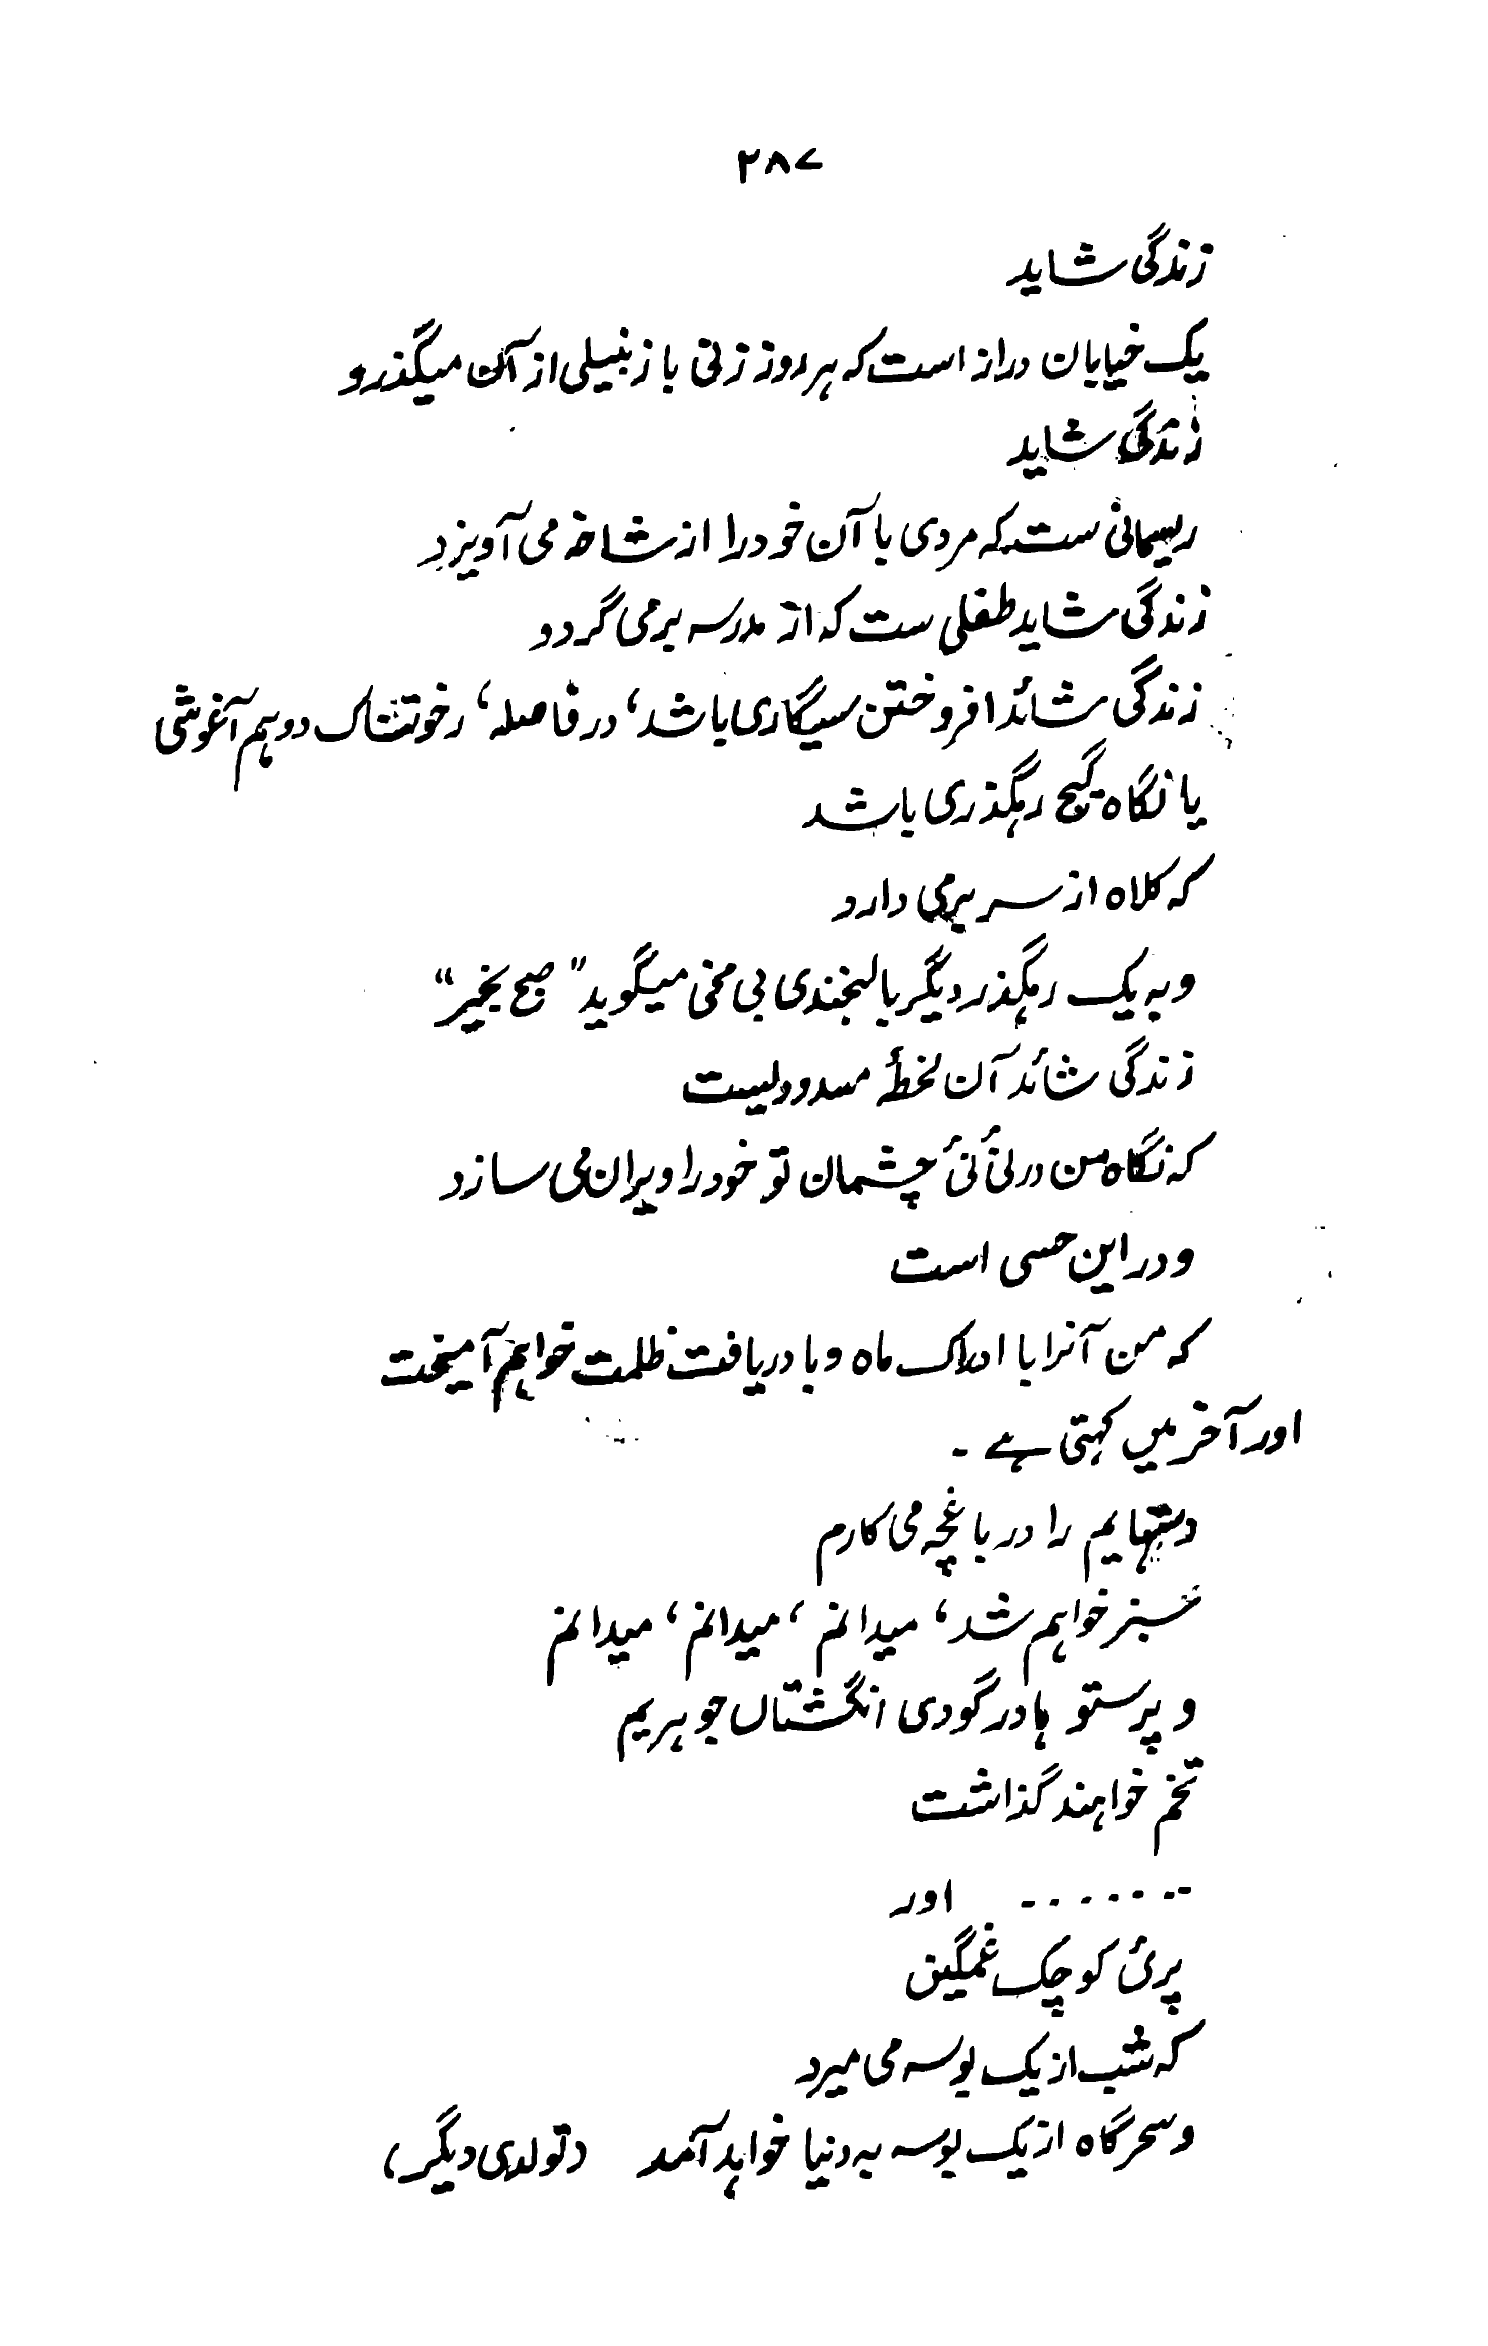 ۲۸۷
زندگی شاید
یک خیابان دراز است که هر روز زنی با زنبیلی از آن میگذرو
زندگی شاید
ریسمانی ست که مردی با آن خود را از شاخه می آویزد
زندگی شاید طفلی ست که از مدرسه برمی گردو
زندگی شائد افروختن سیگاری باشد، در فاصله، رخوتناک دو هم آغوشی
یا نگاه گیج رهگذری باشد
که کلاه از سر برمی دارد
و به یک رهگذر دیگر با لبخندی بی مخی میگوید "صبح بخیر"
زندگی شائد آن لخطۂ مسدودیست
که نگاه من در نئ نئ چشمان تو خود را ویران می سازد
و در این حسی است
که من آنرا با ادراک ماه و با دریافت ظلمت خواهم آمیخت
اور آخر میں کہتی ہے ۔
دستهایم را در باغچه می کارم
سبز خواهم شد، میدانم، میدانم، میدانم
و پرستو ها در گودی انگشتاں جوهریم
تخم خواهند گذاشت
۔۔۔۔۔۔۔ اور
پرئ کوچک غمگین
که شب از یک بوسه می میرد
و سحرگاه از یک بوسه به دنیا خواهد آمد (تولدی دیگر)